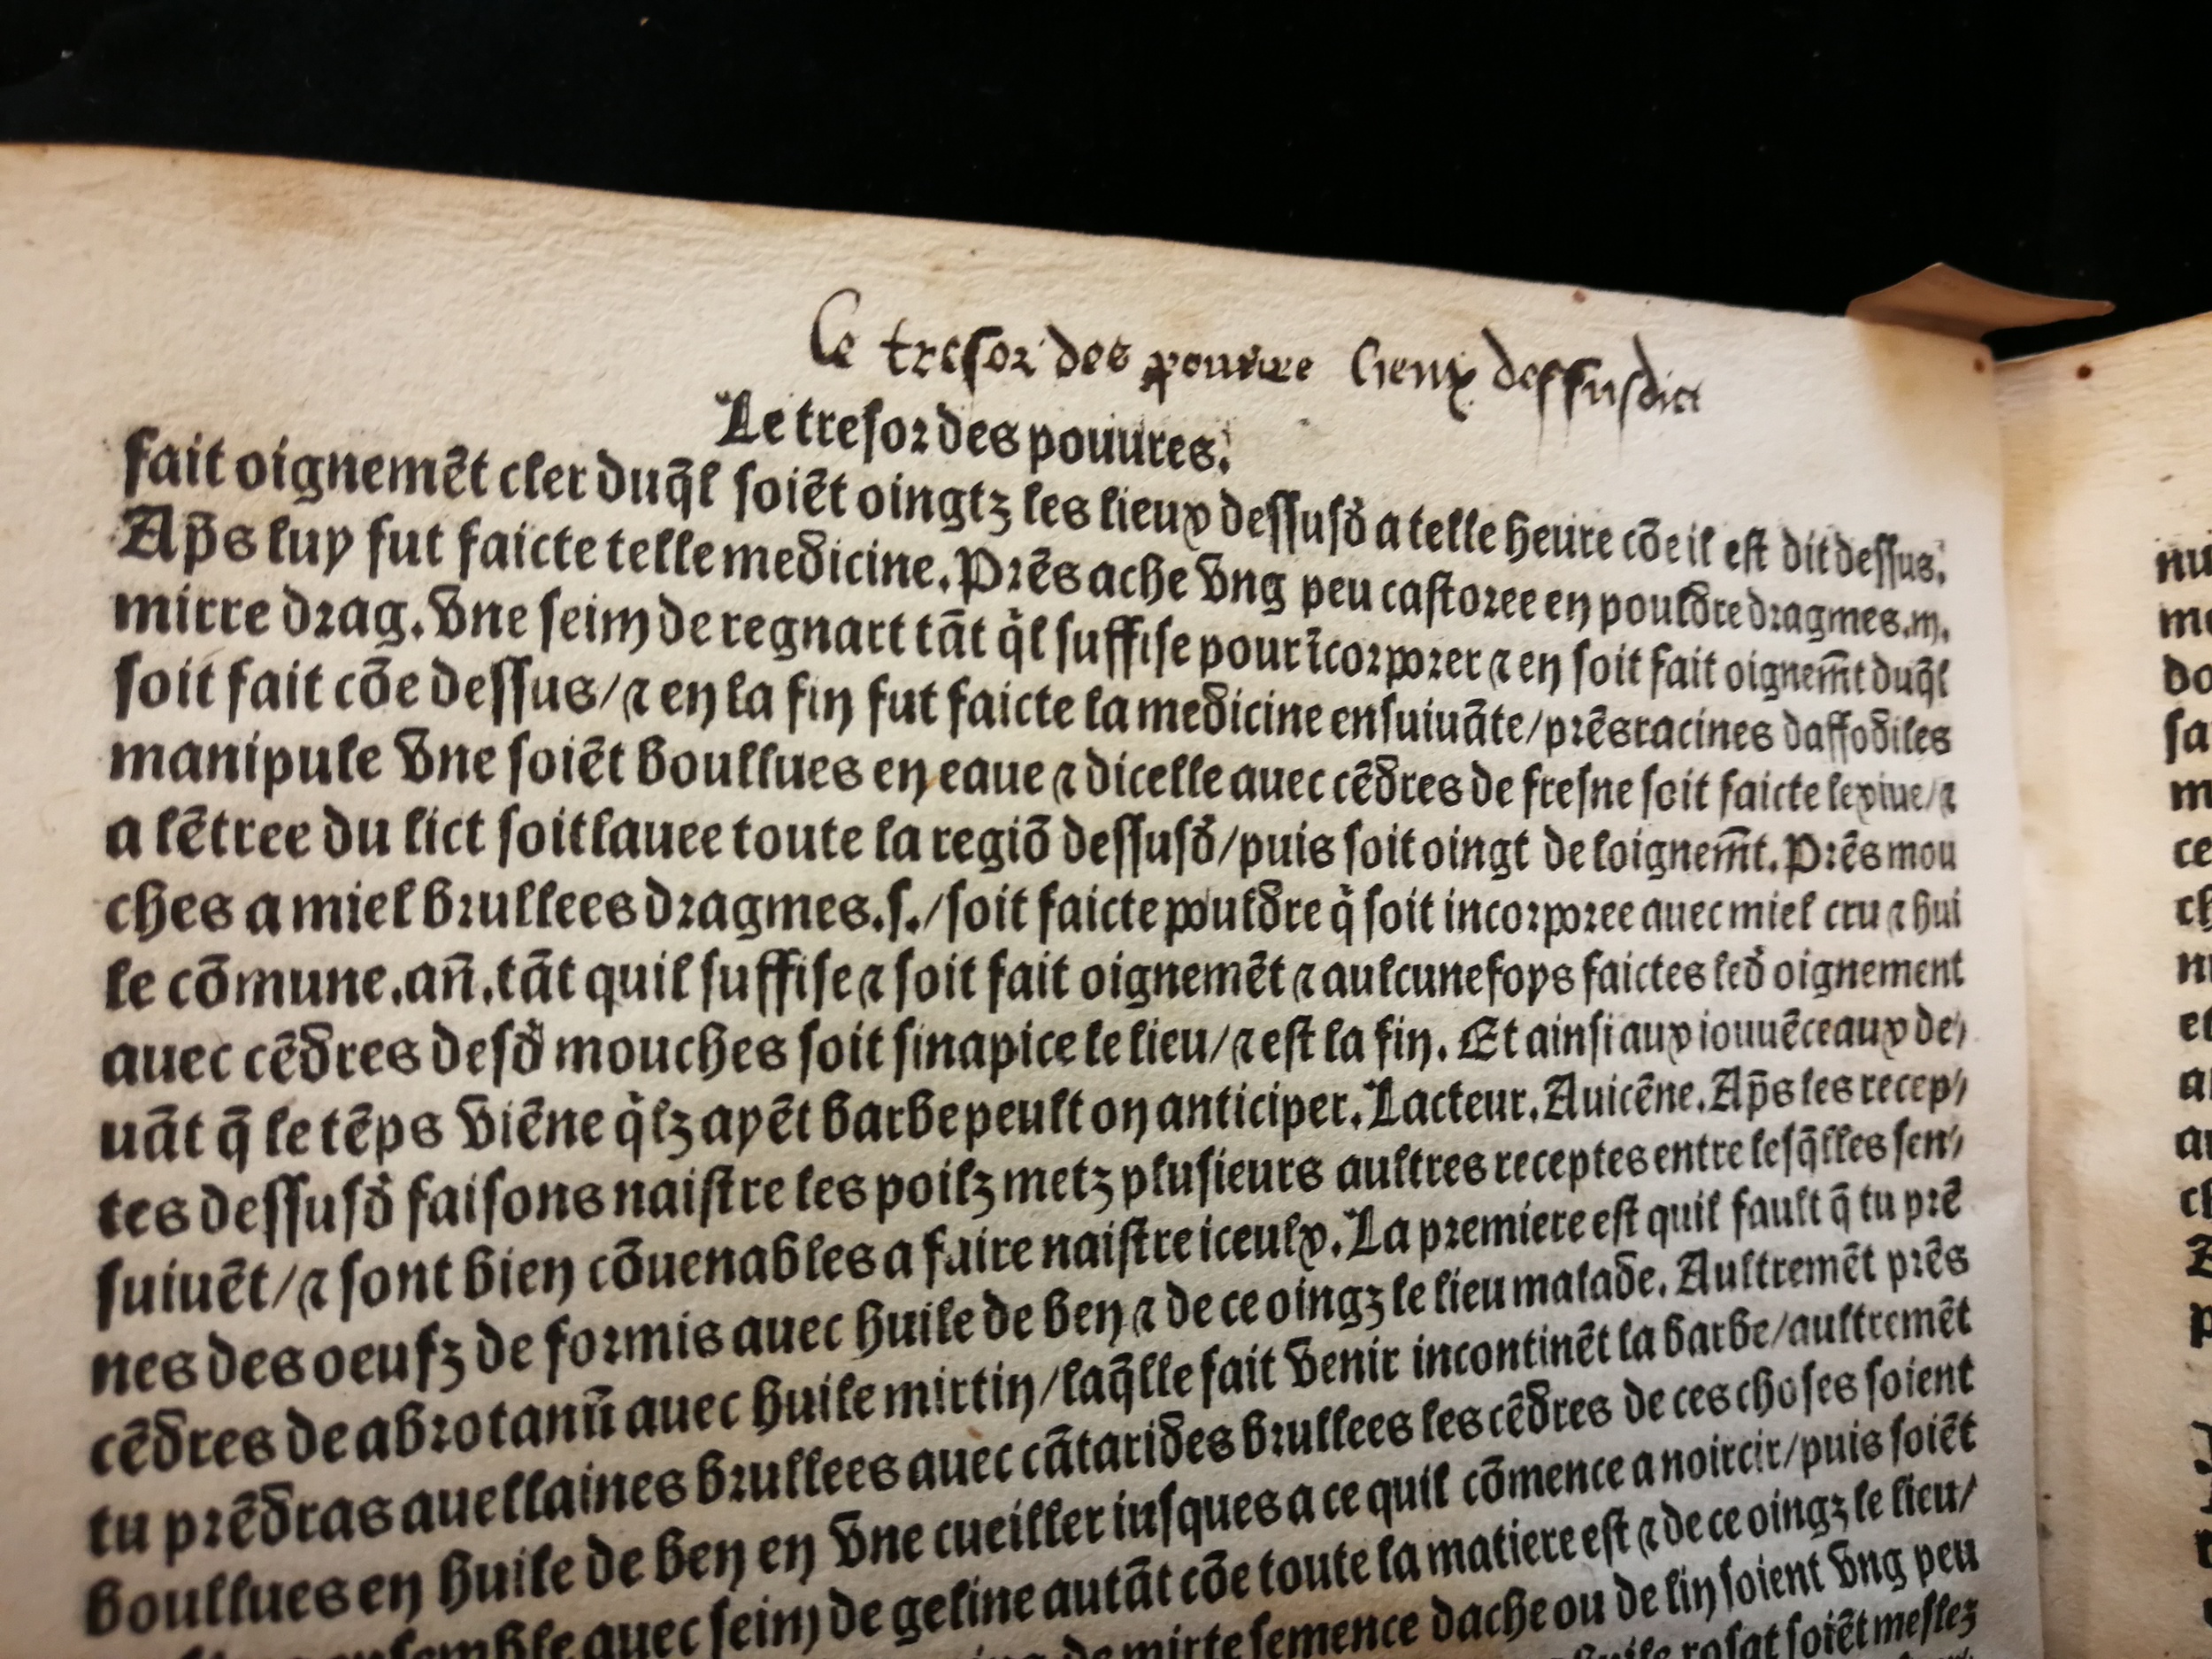 Ce tresor des pouure lieux dessusdict
Le tresor des pouures.
fait oignemēt cler duq̄l soiēt oingtz les lieux dessusd̓ a telle heure cōe il est dit dessus.
Ap̄s luy fut faicte telle medicine. Prēs ache vng peu castoree en pouldre dragmes.iii.
mirre drag. vne seim de regnart tāt q̓l suffise pour īcorporer ⁊ en soit fait oignem̄t duq̄l
soit fait cōe dessus/⁊ en la fin fut faicte la medicine ensuiuāte/prēs racines daffodiles
manipule vne soiēt boullues en eaue ⁊ dicelle auec cēdres de fresne soit faicte lexiue/⁊
a lētree du lict soit lauee toute la regiō dessusd̓/puis soit oingt de loignem̄t. Prēs mou
ches a miel brullees dragmes.s./soit faicte pouldre q̓ soit incorporee auec miel cru ⁊ hui
le cōmune.an̄.tāt quil suffise ⁊ soit fait oignemēt ⁊ aulcunefoys faictes led̓ oignement
auec cēdres desd̓ mouches soit sinapice le lieu/⁊ est la fin. Et ainsi aux iouuēceaux de⸗
uāt q̄ le tēps viēne q̓lz ayēt barbe peult on anticiper. Lacteur. Auicēne. Ap̄s les recep⸗
tes dessusd̓ faisons naistre les poilz metz plusieurs aultres receptes entre lesq̄lles sen⸗
suiuēt/⁊ sont bien cōuenables a faire naistre iceulx. La premiere est quil fault q̄ tu prē
nes des oeufz de formis auec huile de ben ⁊ de ce oingz le lieu malade. Aultremēt prēs
cēdres de abrotanū auec huile mirtin/laq̄lle fait venir incontinēt la barbe/aultremēt
tu prēdras auellaines brullees auec cātarides brullees les cēdres de ces choses soient
boullues en huile de ben en vne cueiller iusques a ce quil cōmence a noircir/puis soiēt
ensemble auec seim de geline autāt cōe toute la matiere est ⁊ de ce oingz le lieu/
de mirte semence dache ou de lin soient vng peu
huile rosat soiēt meslez